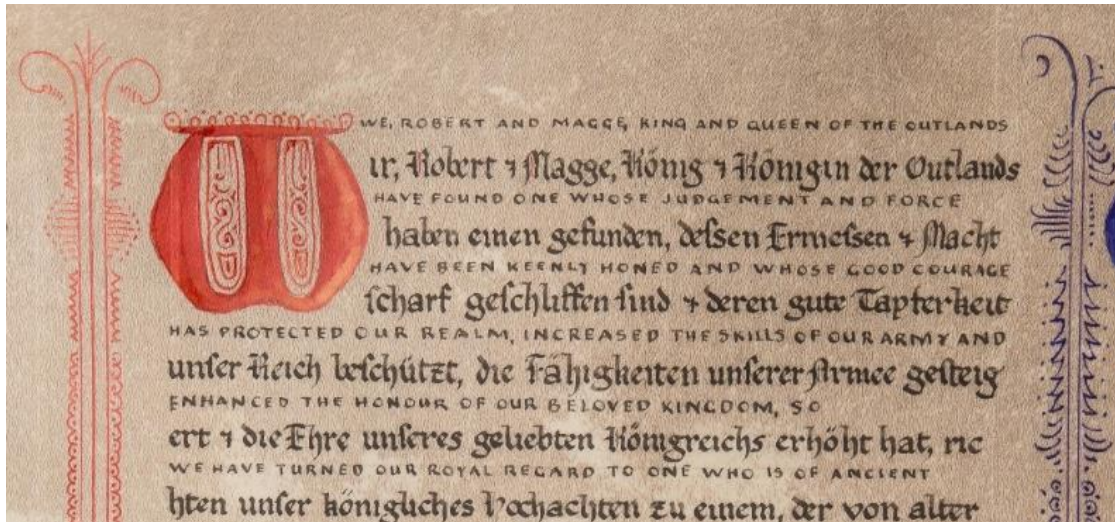 WE, ROBERT AND MAGGE, KING AND QUEEN OF THE OUTLANDS
Wir, Robert ⁊ Magge, König ⁊ Königin der Outlands
HAVE FOUND ONE WHOSE JUDGEMENT AND FORCE
haben einen gefunden, deſsen Ermeſsen ⁊ Macht
HAVE BEEN KEENLY HONED AND WHOSE GOOD COURAGE
ſcharf geſchliffen ſind ⁊ deren gute Tapferkeit
HAS PROTECTED OUR REALM, INCREASED THE SKILLS OF OUR ARMY AND
unſer Reich beſchützt, die Fähigkeiten unſerer Armee geſteig
ENHANCED THE HONOUR OF OUR BELOVED KINGDOM, SO
ert ⁊ die Ehre unſeres geliebten Königreichs erhöht hat, ric
WE HAVE TURNED OUR ROYAL REGARD TO ONE WHO IS OF ANCIENT
hten unſer königliches Hochachten zu einem, der von alter